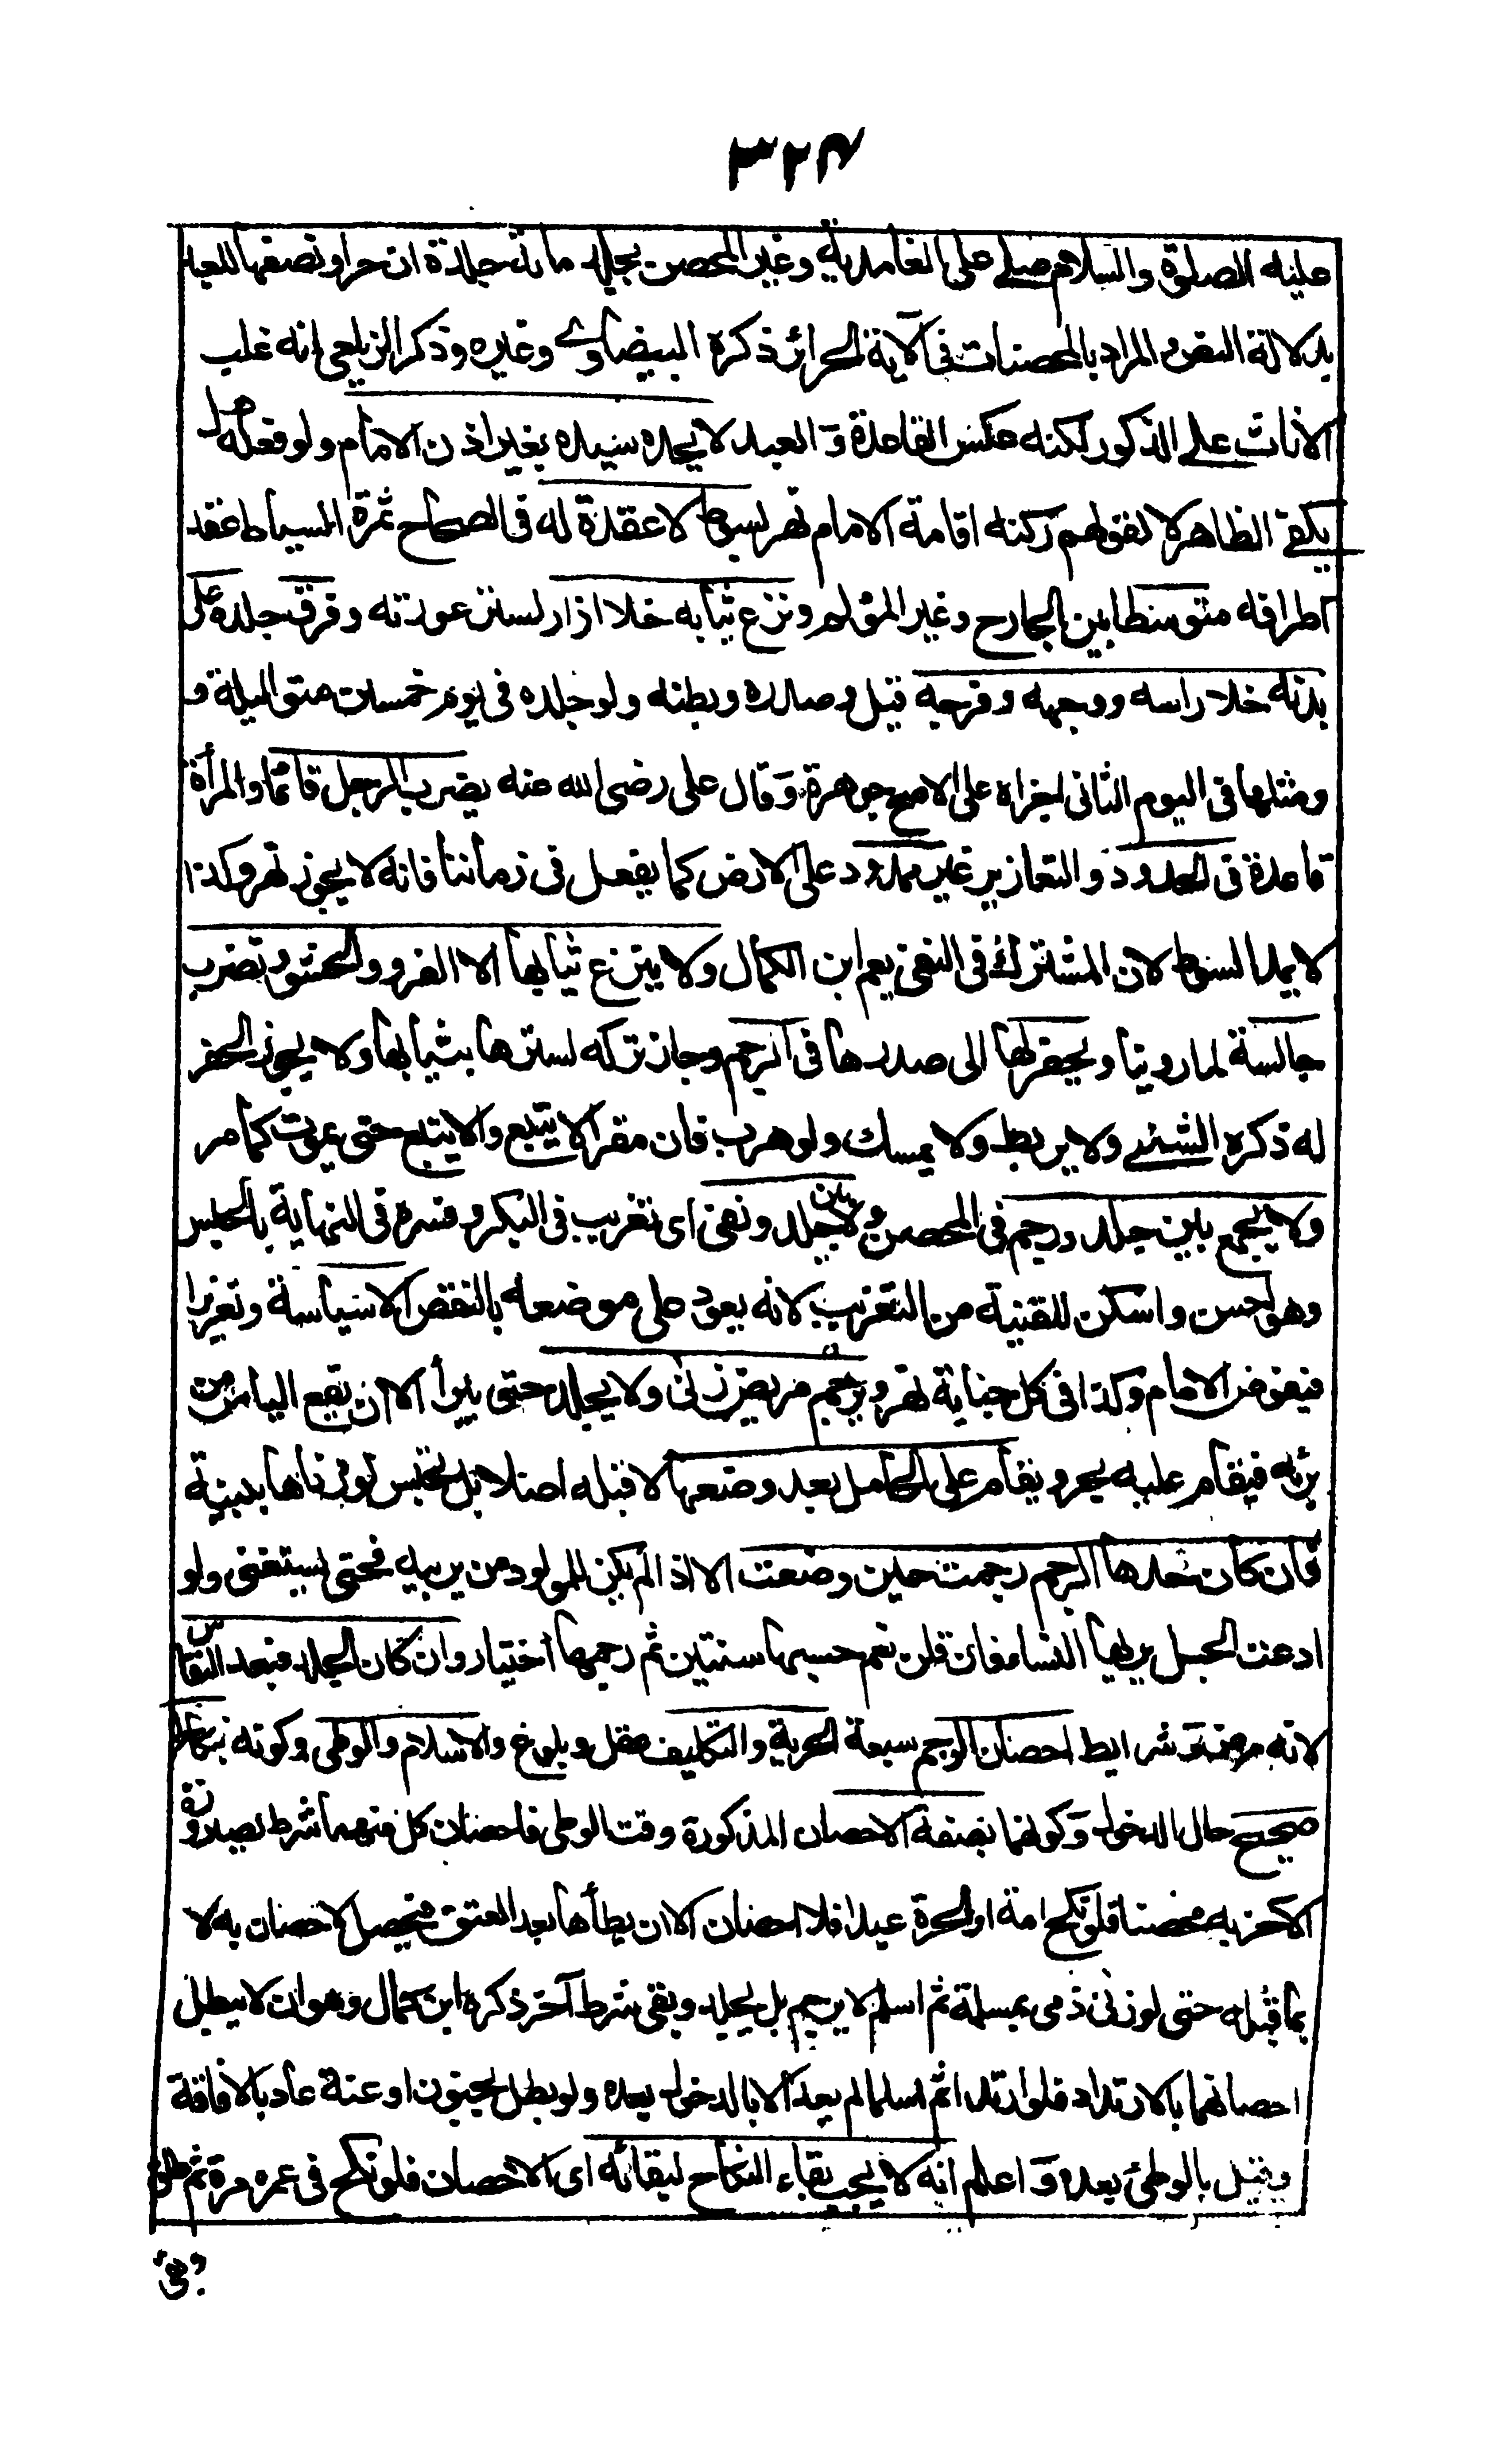 ٣٢٤
عليه الصلوة والسلام صلى على الغامدية وغير المحصن يجلد مائة جلدة ان حرا ونصفها للعبد
بدلالة النص والمراد بالمحصنات فى الآية الحرائر ذكره البيضاوى وغيره وذكر الزيلعى انه غلب
الاناث على الذكور لكنه عكس القاعدة و العبد لا يحده سيده بغير اذن الامام ولو فعله هل
يكفى الظاهر لا لقولهم ركنه اقامة الامام نهر بسوط لا عقدة له فى الصحاح ثمرة السياط عقد
اطرافه متوسطا بين الجارح وغير المؤلم ونزع ثيابه خلا ازار لستر عورته وفرق جلده على
بدنه خلا راسه ووجهه وفرجه قيل وصدره وبطنه ولو جلده فى يوم خمسين متوالية و
ومثلها فى اليوم الثانى اجزاه على الاصح جوهرة وقال على رضى الله عنه يضرب الرجل قائما والمرأة
قاعدة فى الحدود و التعازير غير ممدود على الارض كما يفعل فى زماننا فانه لا يجوز نهر وكذا
لا يمد السوط لان المشترك فى النفى يعم ابن الكمال ولا ينزع ثيابها الا الفرو والحشو وتضرب
جالسة لما روينا ويحفر لها الى صدرها فى الرجم وجاز تركه لسترها بثيابها ولا يجوز الحفر
له ذكره الشمنى ولا يربط ولا يمسك ولو هرب فان مقرا لا يتبع والا يتبع حتى يموت كما مر
ولا يجمع بين جلد ورجم فى المحصن ولا بين جلد ونفى اى تغريب فى البكر وفسره فى النهاية بالحبس
وهو احسن واسكن للفتنة من التغريب لانه يعود على موضعه بالنقض الا سياسة وتعزيرا
فيفوض الامام وكذا فى كل جناية نهر ويرجم مريض زنى ولا يجلد حتى يبرأ الا ان يقع الياس من
برئه فيقام عليه بحر ويقام على الحامل بعد وضعها لا قبله اصلا بل تحبس لو زناها ببينة
فان كان حدها الرجم رجمت حين وضعت الا اذا لم يكن للمولود من يربيه فحتى يستغنى ولو
ادعت الحبل يريها النسا فان قلن نعم حبسها سنتين ثم رجمها اختيار وان كان الجلد فبعد النفاس
لانه مرض و شرايط احصان الرجم سبعة الحرية والتكليف عقل وبلوغ والاسلام والوطى وكونه بنكاح
صحيح حال الدخول و كونهما بصفة الاحصان المذكورة وقت الوطى فاحصان كل منهما شرط لصيرورة
الآخر به محصنا فلو نكح امة او الحرة عبدا فلا احصان الا ان يطأها بعد العتق فيحصل الاحصان به لا
بما قبله حتى لو زنى ذمى بمسلمة ثم اسلم لا يرجم بل يجلد وبقى شرط آخر ذكره ابن كمال وهو ان لا يبطل
احصانهما بالارتداد فلو ارتدا ثم اسلما لم يعد الا بالدخول بعده ولو بطل بجنون او عته عاد بالافاقة
وقيل بالوطئ بعده و اعلم انه لا يجب بقاء النكاح لبقائه اى الاحصان فلو نكح فى عمره مرة ثم طلق